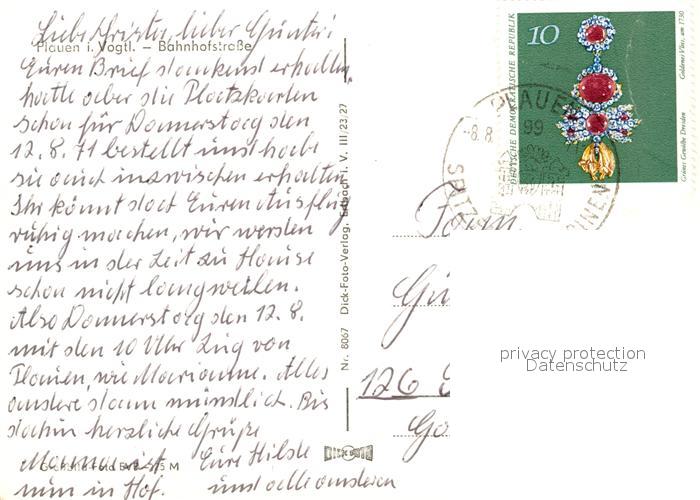 Liebe Christa, lieber Günter!
Plauen i. Vogtl. – Bahnhofstraße
Euren Brief dankend erhalten,
hatte aber die Platzkarten
schon für Donnerstag den
12.8.71 bestellt und habe
sie auch inzwischen erhalten.
Ihr könnt doch Euren Ausflug
ruhig machen, wir werden
uns in der Zeit zu Hause
schon nicht langweilen.
Also Donnerstag den 12.8.
mit den 10 Uhr Zug von
Plauen, wie Marianne. Alles
andere dann mündlich. Bis
dahin herzliche Grüße
Eure Hilde
nun in Hof. und alle anderen
Nr. 8067 Dick-Foto-Verlag, Erlbach i. V. III/23/27
10
DEUTSCHE DEMOKRATISCHE REPUBLIK
Goldenes Vlies, um 1730
Grünes Gewölbe Dresden
PLAUEN
-8.8.
99
Fam.
Gü
126
Go
privacy protection
Datenschutz